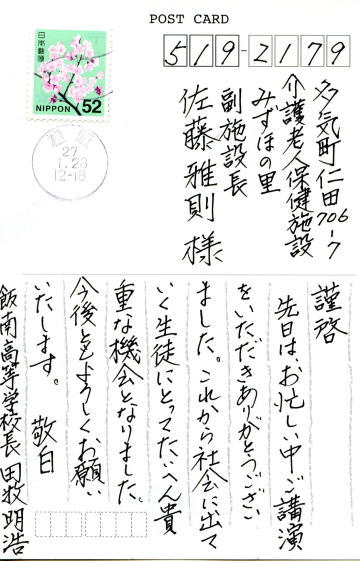 POST CARD
日本郵便
NIPPON 52
27
1.28
12-18
519-2179
多気町仁田706-7
介護老人保健施設
みずほの里
副施設長
佐藤雅則様
謹啓
先日は、お忙しい中ご講演
をいただきありがとうござい
ました。これから社会に出て
いく生徒にとってたいへん貴
重な機会となりました。
今後ともよろしくお願い
いたします。 敬白
飯南高等学校長 田牧明浩